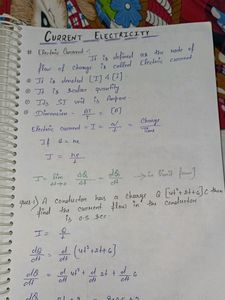 CURRENT ELECTRICITY
Electric Current :-
It is defined as the rate of
flow of charge is called Electric current
It is denoted [I] & [i]
It is scalar quantity
Its SI unit is Ampere
Dimension =
Electric current = I = Q/t = Charge/time
If Q = ne
I = ne/t
I = lim Δt→0 ΔQ/Δt = dQ/dt → in limit form]
Ques:-) A conductor has a charge Q [4t²+2t+6] C then
find the current flow in the conductor
is 0.5 sec.
I = Q/t
dQ/dt = d/dt (4t²+2t+6)
dQ/dt = d/dt 4t² + d/dt 2t + d/dt 6
dQ/dt